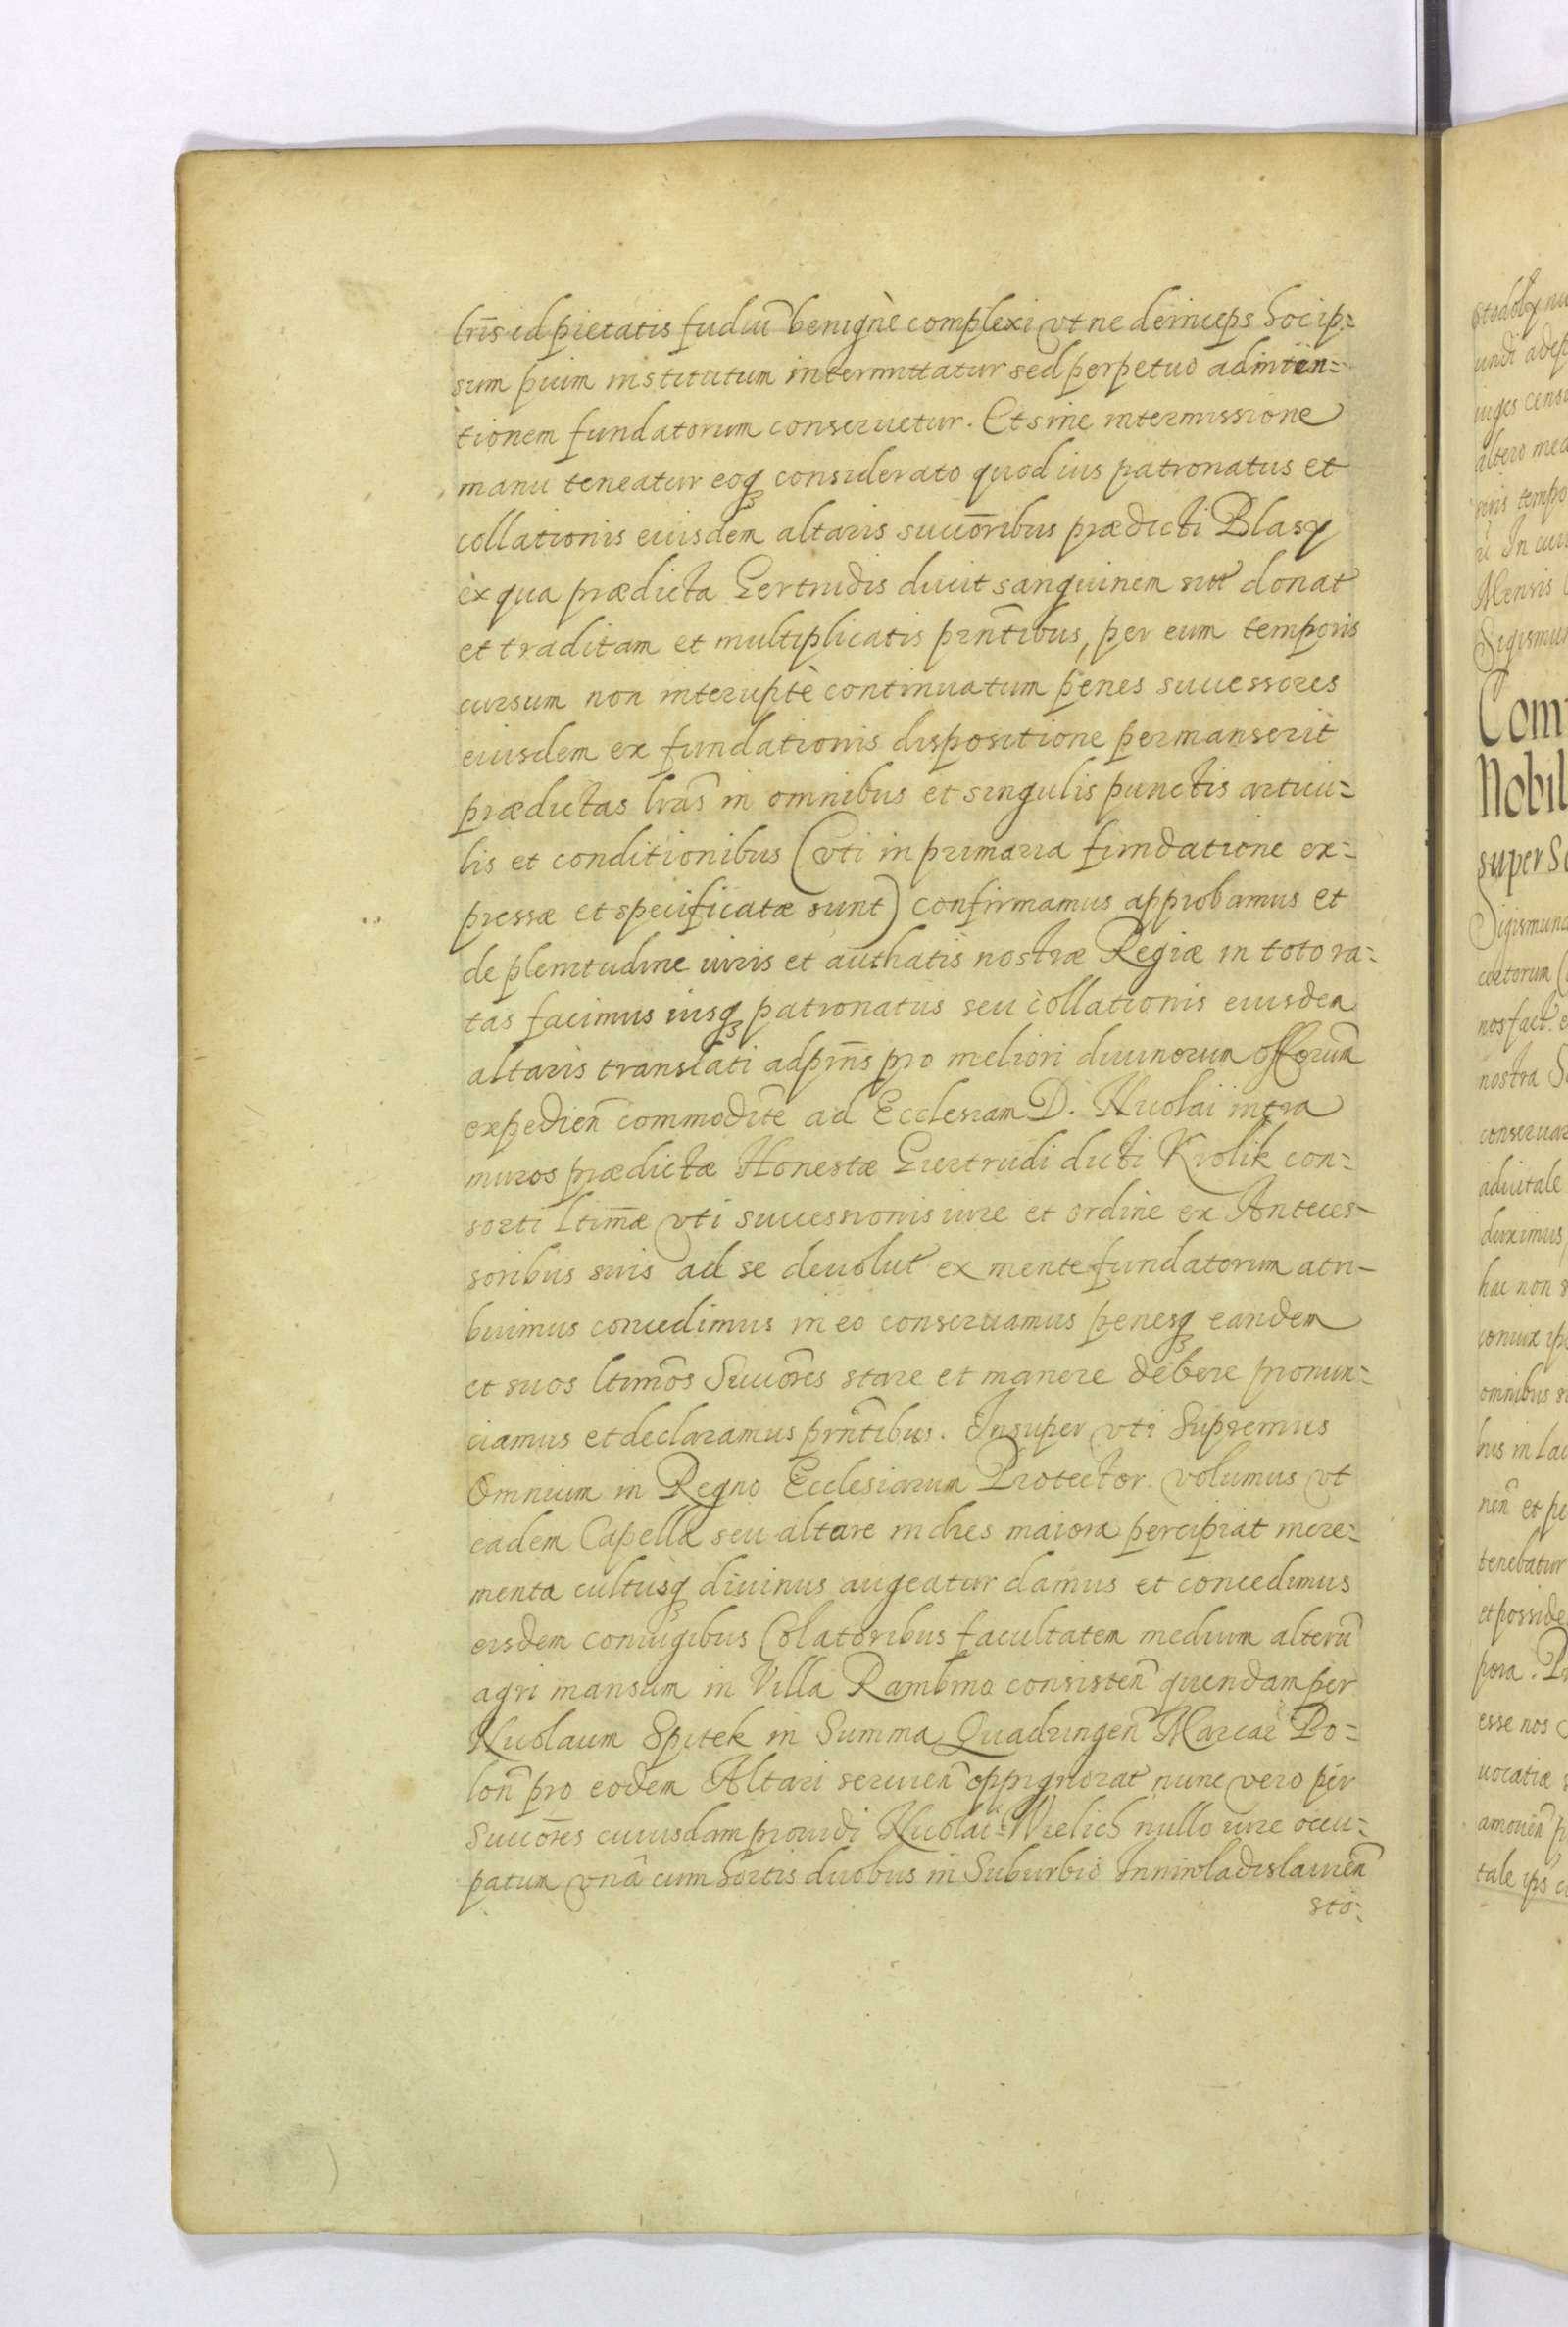 lrīs id pietatis fudiū benignè complexi vt ne deinceps hoc ip=
sum pium institutum intermittatur sed perpetuo ad inten=
tionem fundatorum conseruetur. Et sine intermissione
manu teneatur eoq3 considerato quod ius patronatus et
collationis eiusdem altaris succōribus prædicti Blasy
ex qua prædicta Gertrudis ducit sanguinem sit donat
et traditam et multiplicatis prn̄tibus, per eum temporis
cursum non interuptè continuatum penes successores
eiusdem ex fundationis dispositione permanserit
prædictas lrās in omnibus et singulis punctis articu=
lis et conditionibus (vti in primaria fundatione ex=
pressæ et specificatæ sunt) confirmamus approbamus et
de plenitudine iuris et authatis nostræ Regiæ in toto ra=
tas facimus iusq3 patronatus seu collationis eiusdem
altaris translati ad prn̄s pro meliori diuinorum offorum
expedien̄ commodite ad Ecclesiam D. Nicolai intra
muros prædictæ Honestæ Giertrudi dicti Krolik con=
sorti ltimæ vti successionis iure et ordine ex Anteces-
soribus suis ad se deuolut ex mente fundatorum atri-
buimus concedimus in eo conseruamus penesq3 eandem
et suos ltimos Succōres stare et manere debere pronun=
ciamus et declaramus prn̄tibus. Insuper vti Supremus
Omnium in Regno Ecclesiarum Protector volumus vt
eadem Capella seu altare in dies maiora percipiat incre=
menta cultusq3 diuinus augeatur damus et concedimus
eisdem coniugibus Colatoribus facultatem medium alterū
agri mansum in Villa Rambino consisten̄ quendam per
Nicolaum Spitek in Summa Quadringen̄ Marcar̄ Po=
lon̄ pro eodem Altari seruien̄ oppignorat nunc vero per
Succōres cuiusdam prouidi Nicolai Wielich nullo iure occu=
patum vnâ cum hortis duobus in Suburbio Inniwladislauien̄
sto=